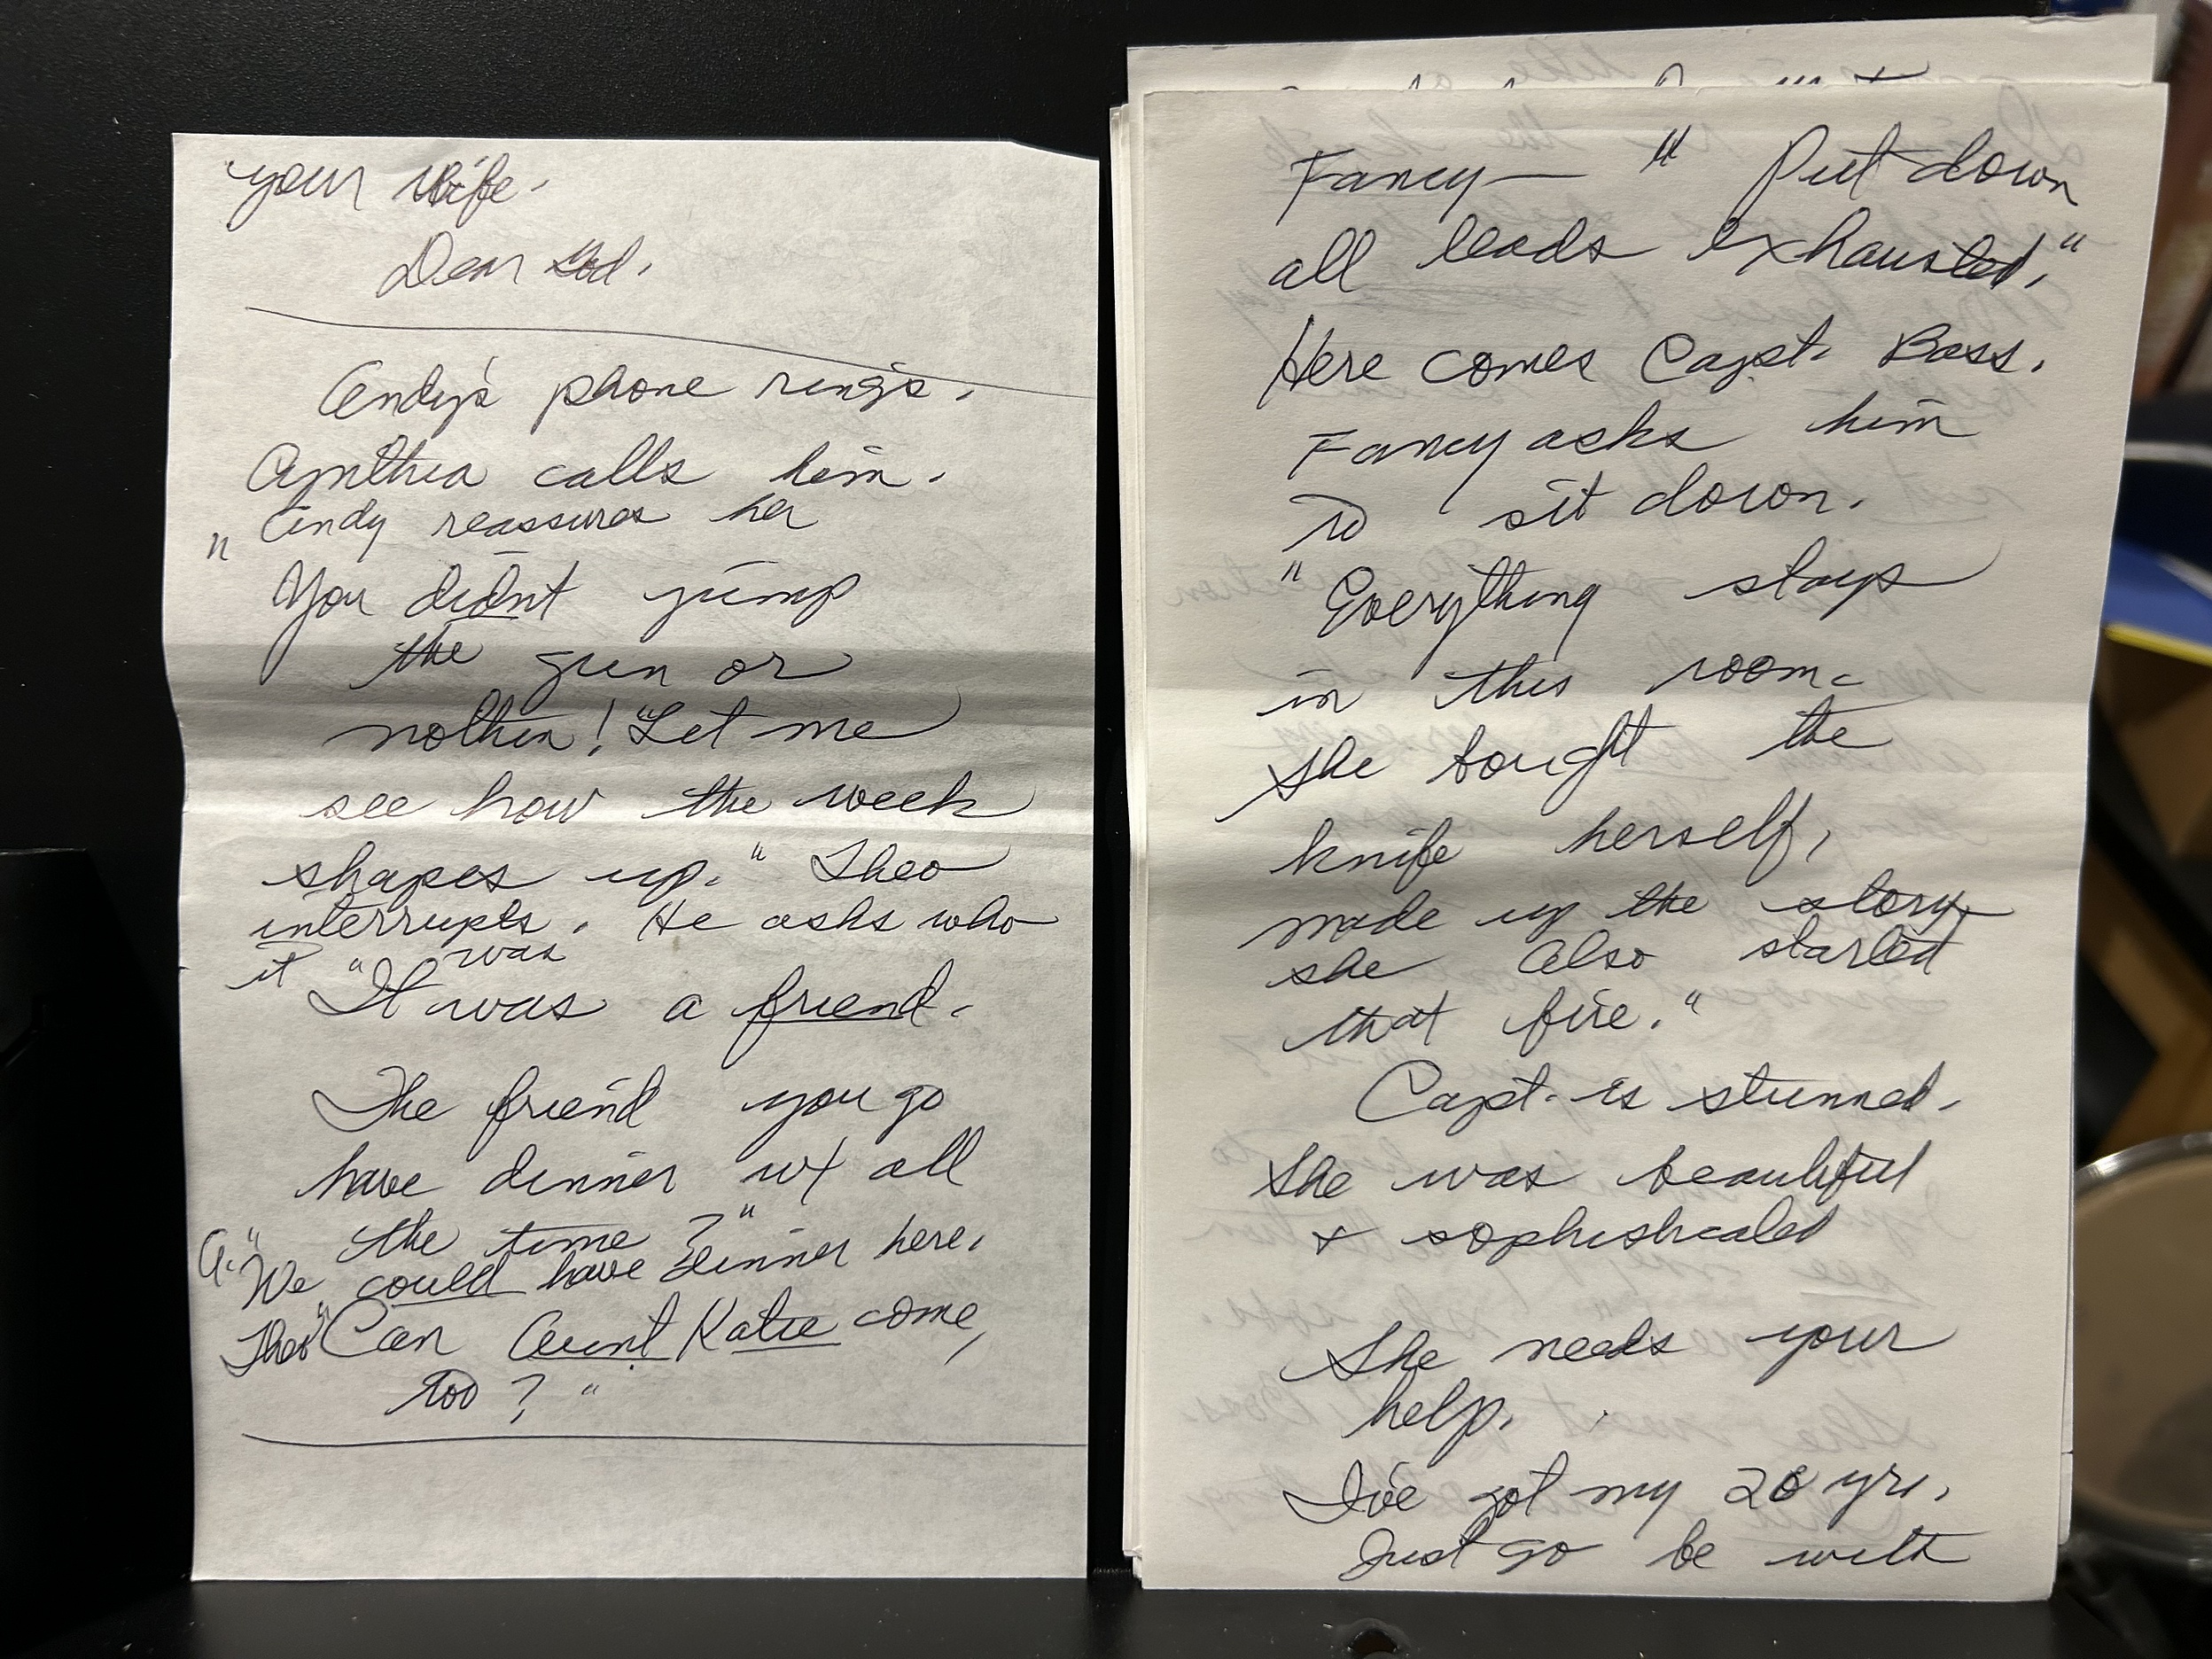 your wife.
Dear God.
Andy's phone rings.
Cynthia calls him.
Andy reassures her
" You didnt jump
the gun or
nothin! "Let me
see how the week
shapes up." Theo
interrupts. He asks who
it was
"It was a friend.
The friend you go
have dinner w/ all
the time?"
A. "We could have dinner here.
Theo "Can Aunt Katie come,
too?"
Fancy— " Put down
all leads exhausted."
Here comes Capt. Bass.
Fancy asks him
to sit down.
"Everything stays
in this room.
She bought the
knife herself,
made up the story
she also started
that fire."
Capt. is stunned.
She was beautiful
& sophisticated
She needs your
help.
I've got my 20 yrs.
Just go be with